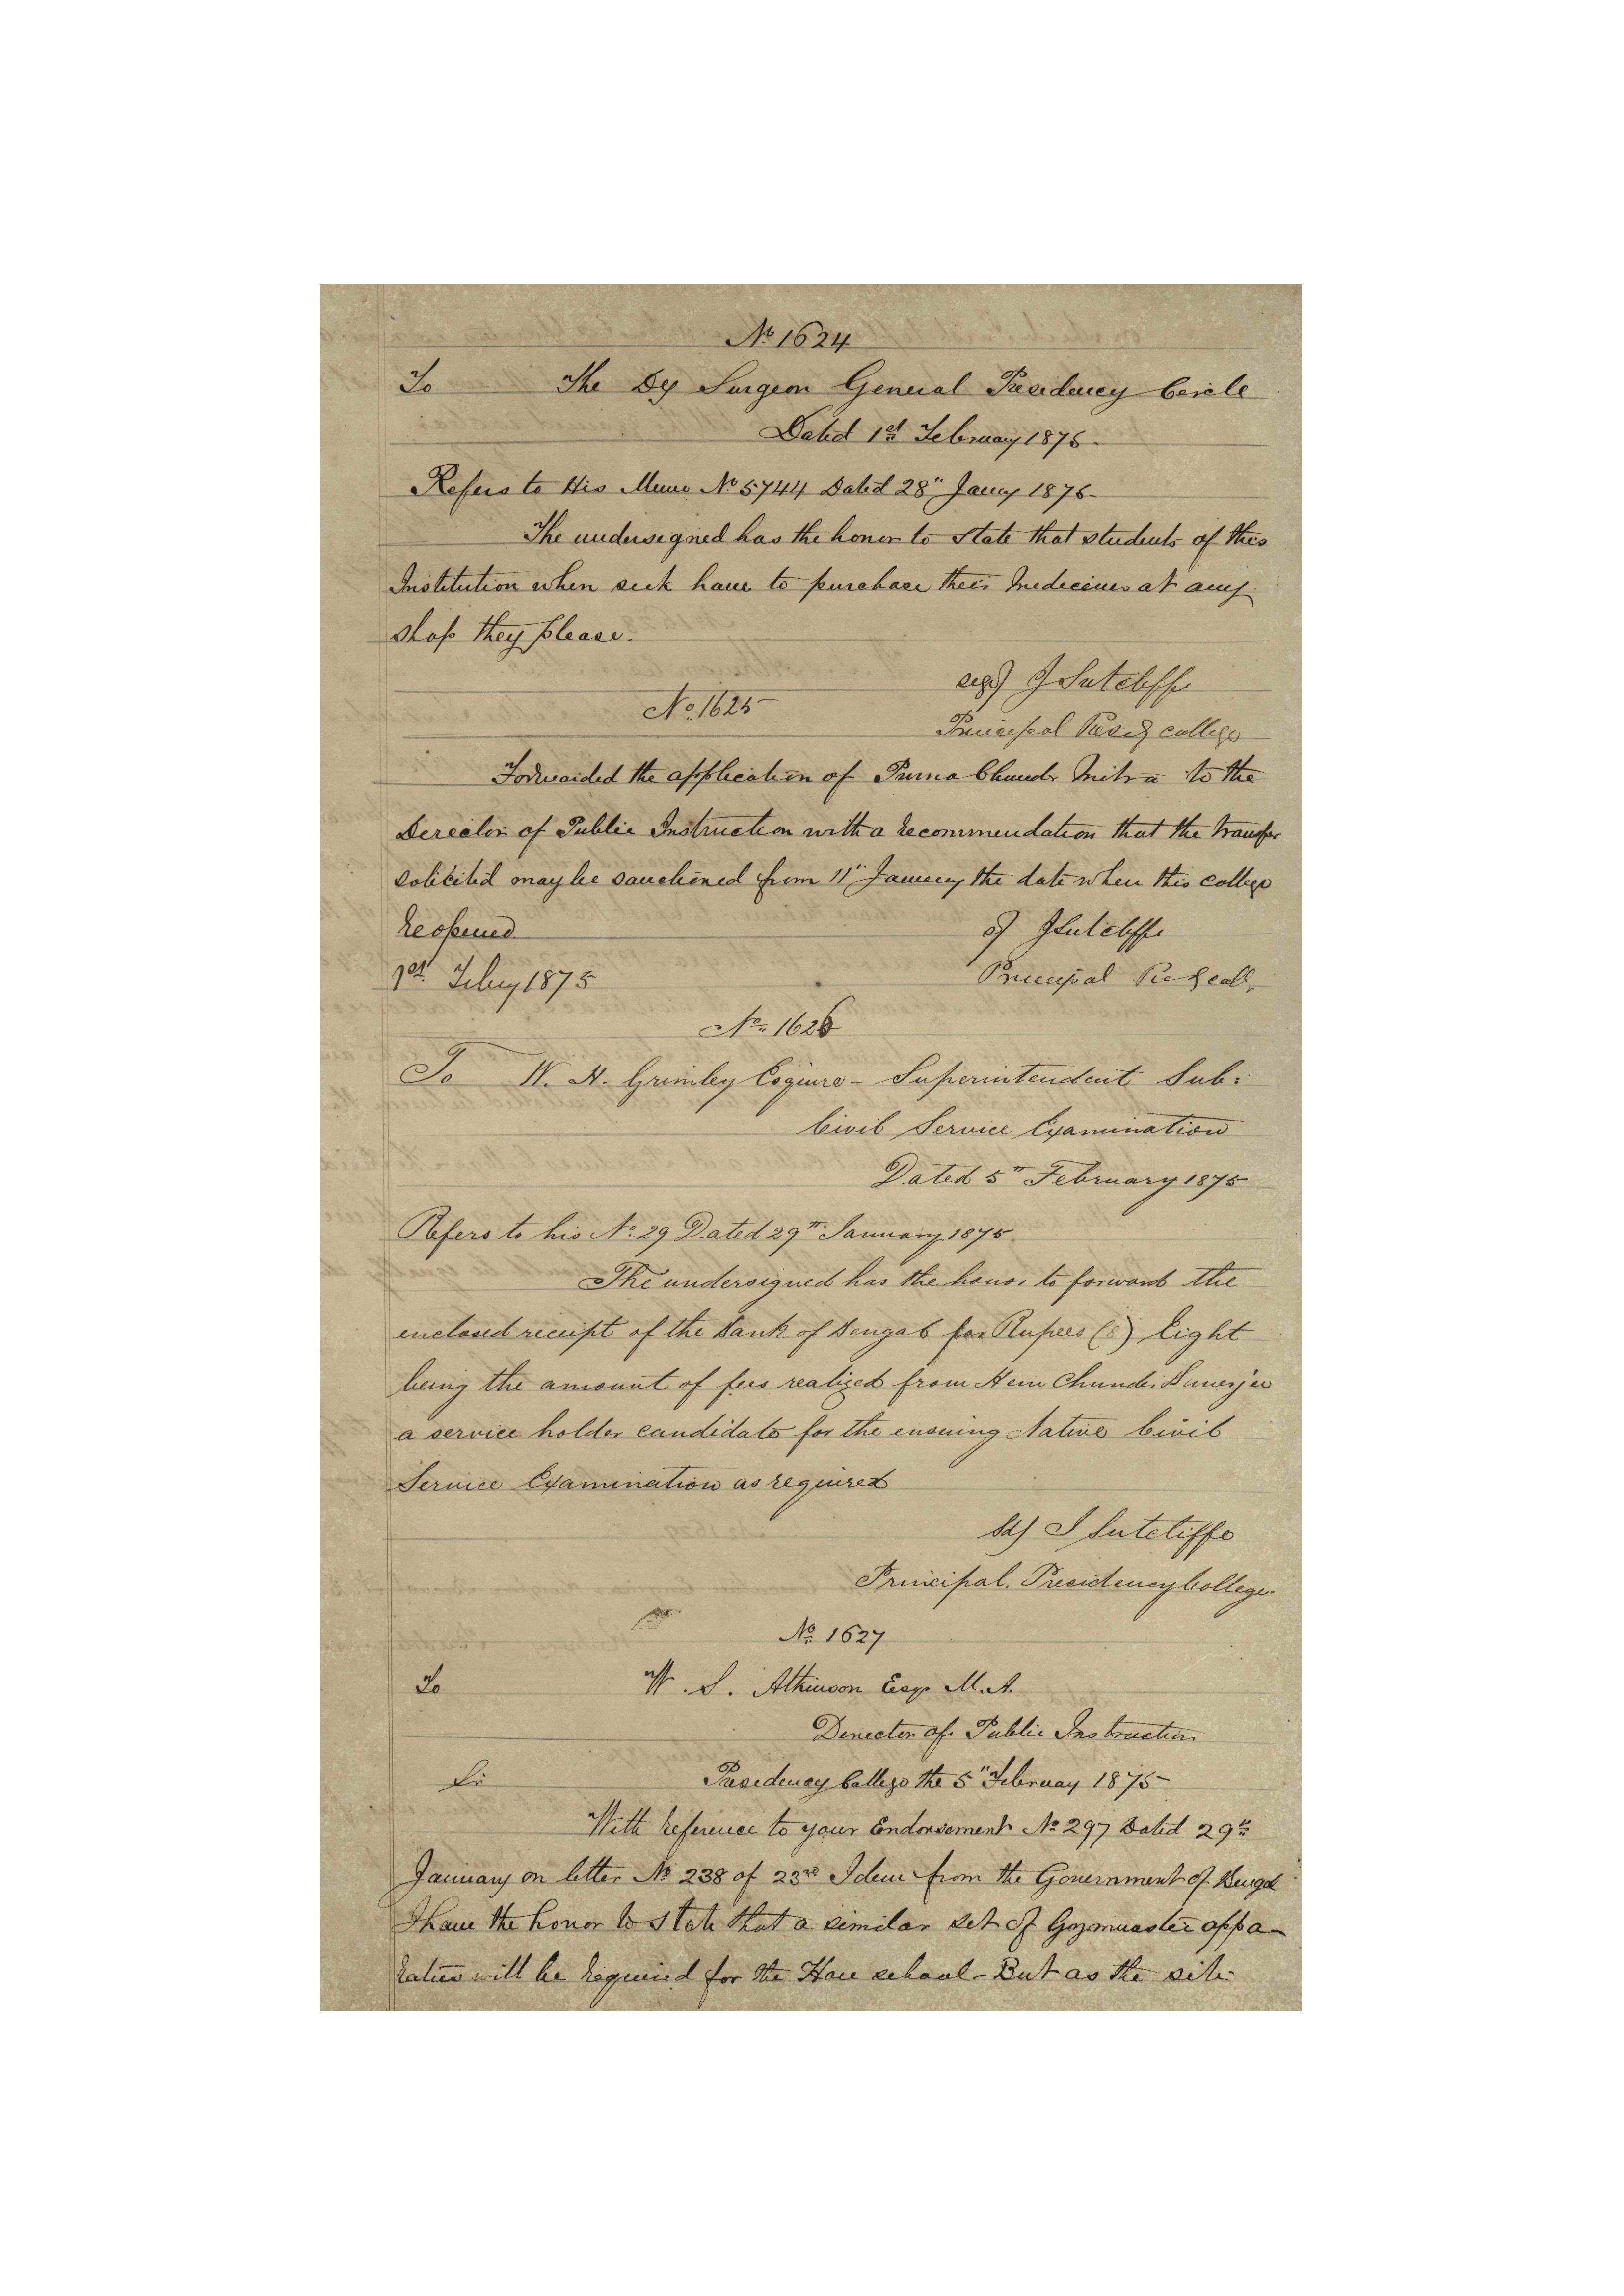 No 1624
To The Dy Surgeon General Presidency Circle
Dated 1st February 1875
Refers to His Memo No 5744 Dated 28" Jany 1875
The undersigned has the honor to state that students of this
Institution when sick have to purchase their medicines at any
shop they please.
sigd) J Sutcliffe
No. 1625
Principal Presiy college
Forwarded the application of Purna Chunder Mitra to the
Director of Public Instruction with a recommendation that the transfer
solicited may be sanctioned from 11" January the date when this college
reopened
sd J Sutcliffe
1st Feby 1875
Principal Presy coll,
No. 1626
To W. H. Grimley Esquire - Superintendent Sub:
Civil Service Examination
Dated 5th February 1875
Refers to his No. 29 Dated 29th January 1875
The undersigned has the honor to forward the
enclosed receipt of the Bank of Bengal for Rupees (8) Eight
being the amount of fees realized from Hem Chunder Banerjee
a service holder candidate for the ensuing Native Civil
Service Examination as required
Sd) J Sutcliffe
Principal. Presidency College.
No. 1627
To W. S. Atkinson Esqr M.A.
Director of Public Instruction
Sir Presidency College the 5" February 1875
With reference to your Endorsement No 297 Dated 29th
January on letter No 238 of 23rd Idem from the Government of Bengal
I have the honor to state that a similar set of Gymnastic appa-
ratus will be required for the Hare school - But as the site